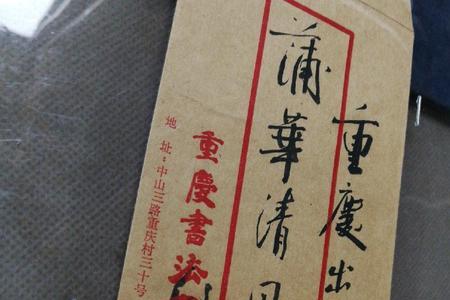 重慶出
蒲華清
重慶書法
地址：中山三路重庆村三十号